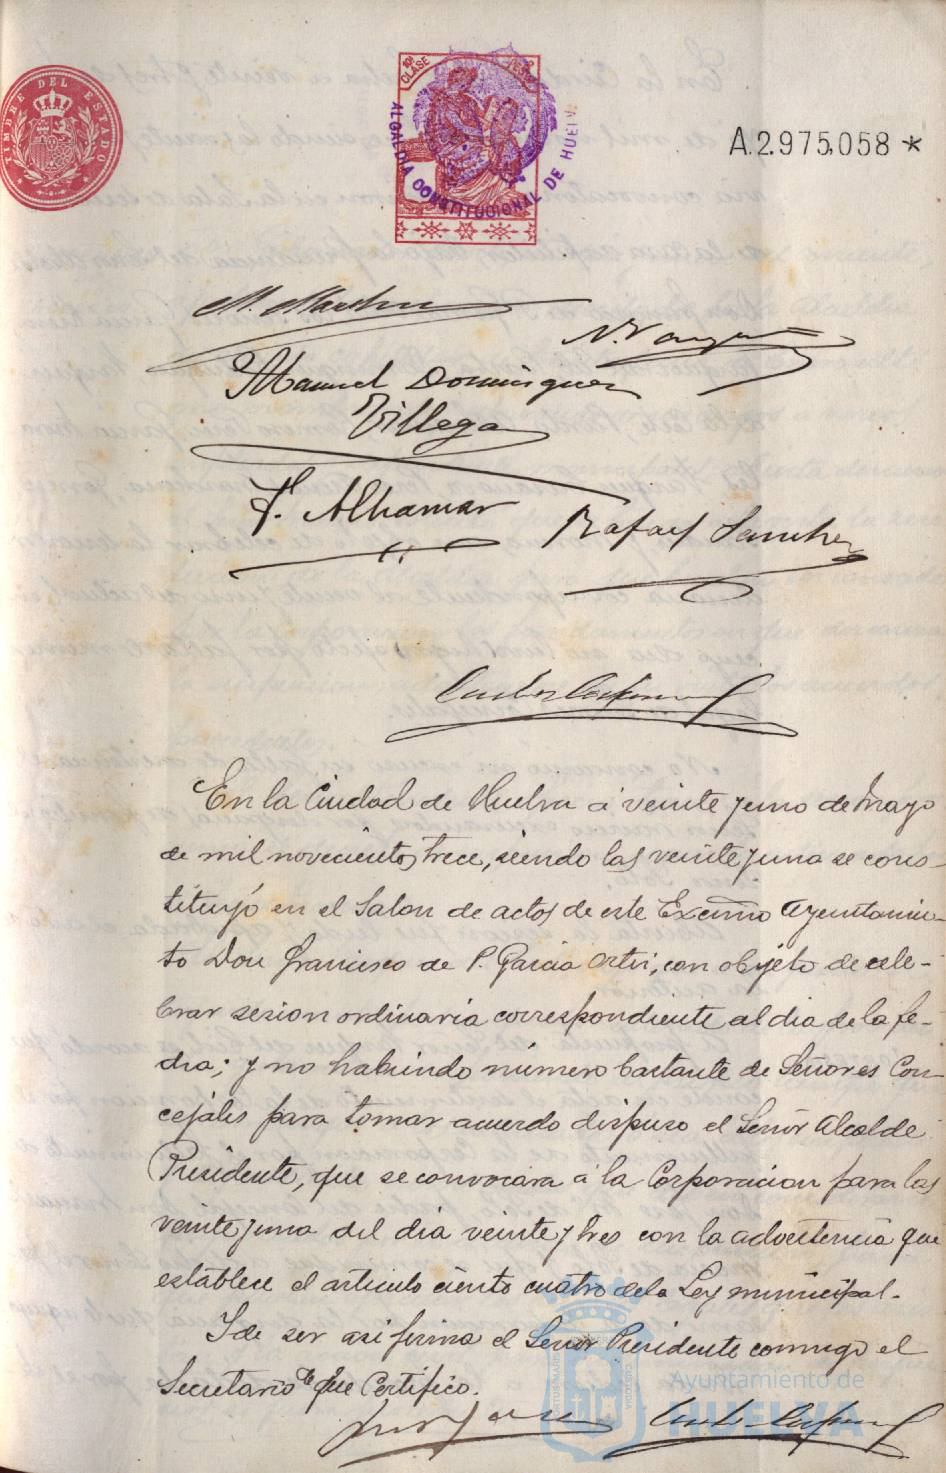 TIMBRE DEL ESTADO
10ª CLASE
ALCALDIA CONSTITUCIONAL DE HUELVA
A.2.975,058 *
M.
N. Vazquez
Manuel Dominguez
Villega
F. Alhamar
Rafael Sanchez
En la Ciudad de Huelva á veinte y uno de Mayo
de mil novecientos trece, siendo las veinte y una se cons-
tituyó en el Salon de actos de este Excmo Ayuntamien-
to Don Francisco de P. Garcia Ortiz, con objeto de cele-
brar sesion ordinaria correspondiente al dia de la fe-
cha; y no habiendo número bastante de Señores Con-
cejales para tomar acuerdo dispuso el Señor Alcalde
Presidente, que se convocara á la Corporacion para las
veinte y una del dia veinte y tres con la advertencia que
establece el articulo ciento cuatro de la Ley municipal.
Y de ser asi firma el Señor Presidente conmigo el
Secretario de que Certifico.
Ayuntamiento de
HUELVA